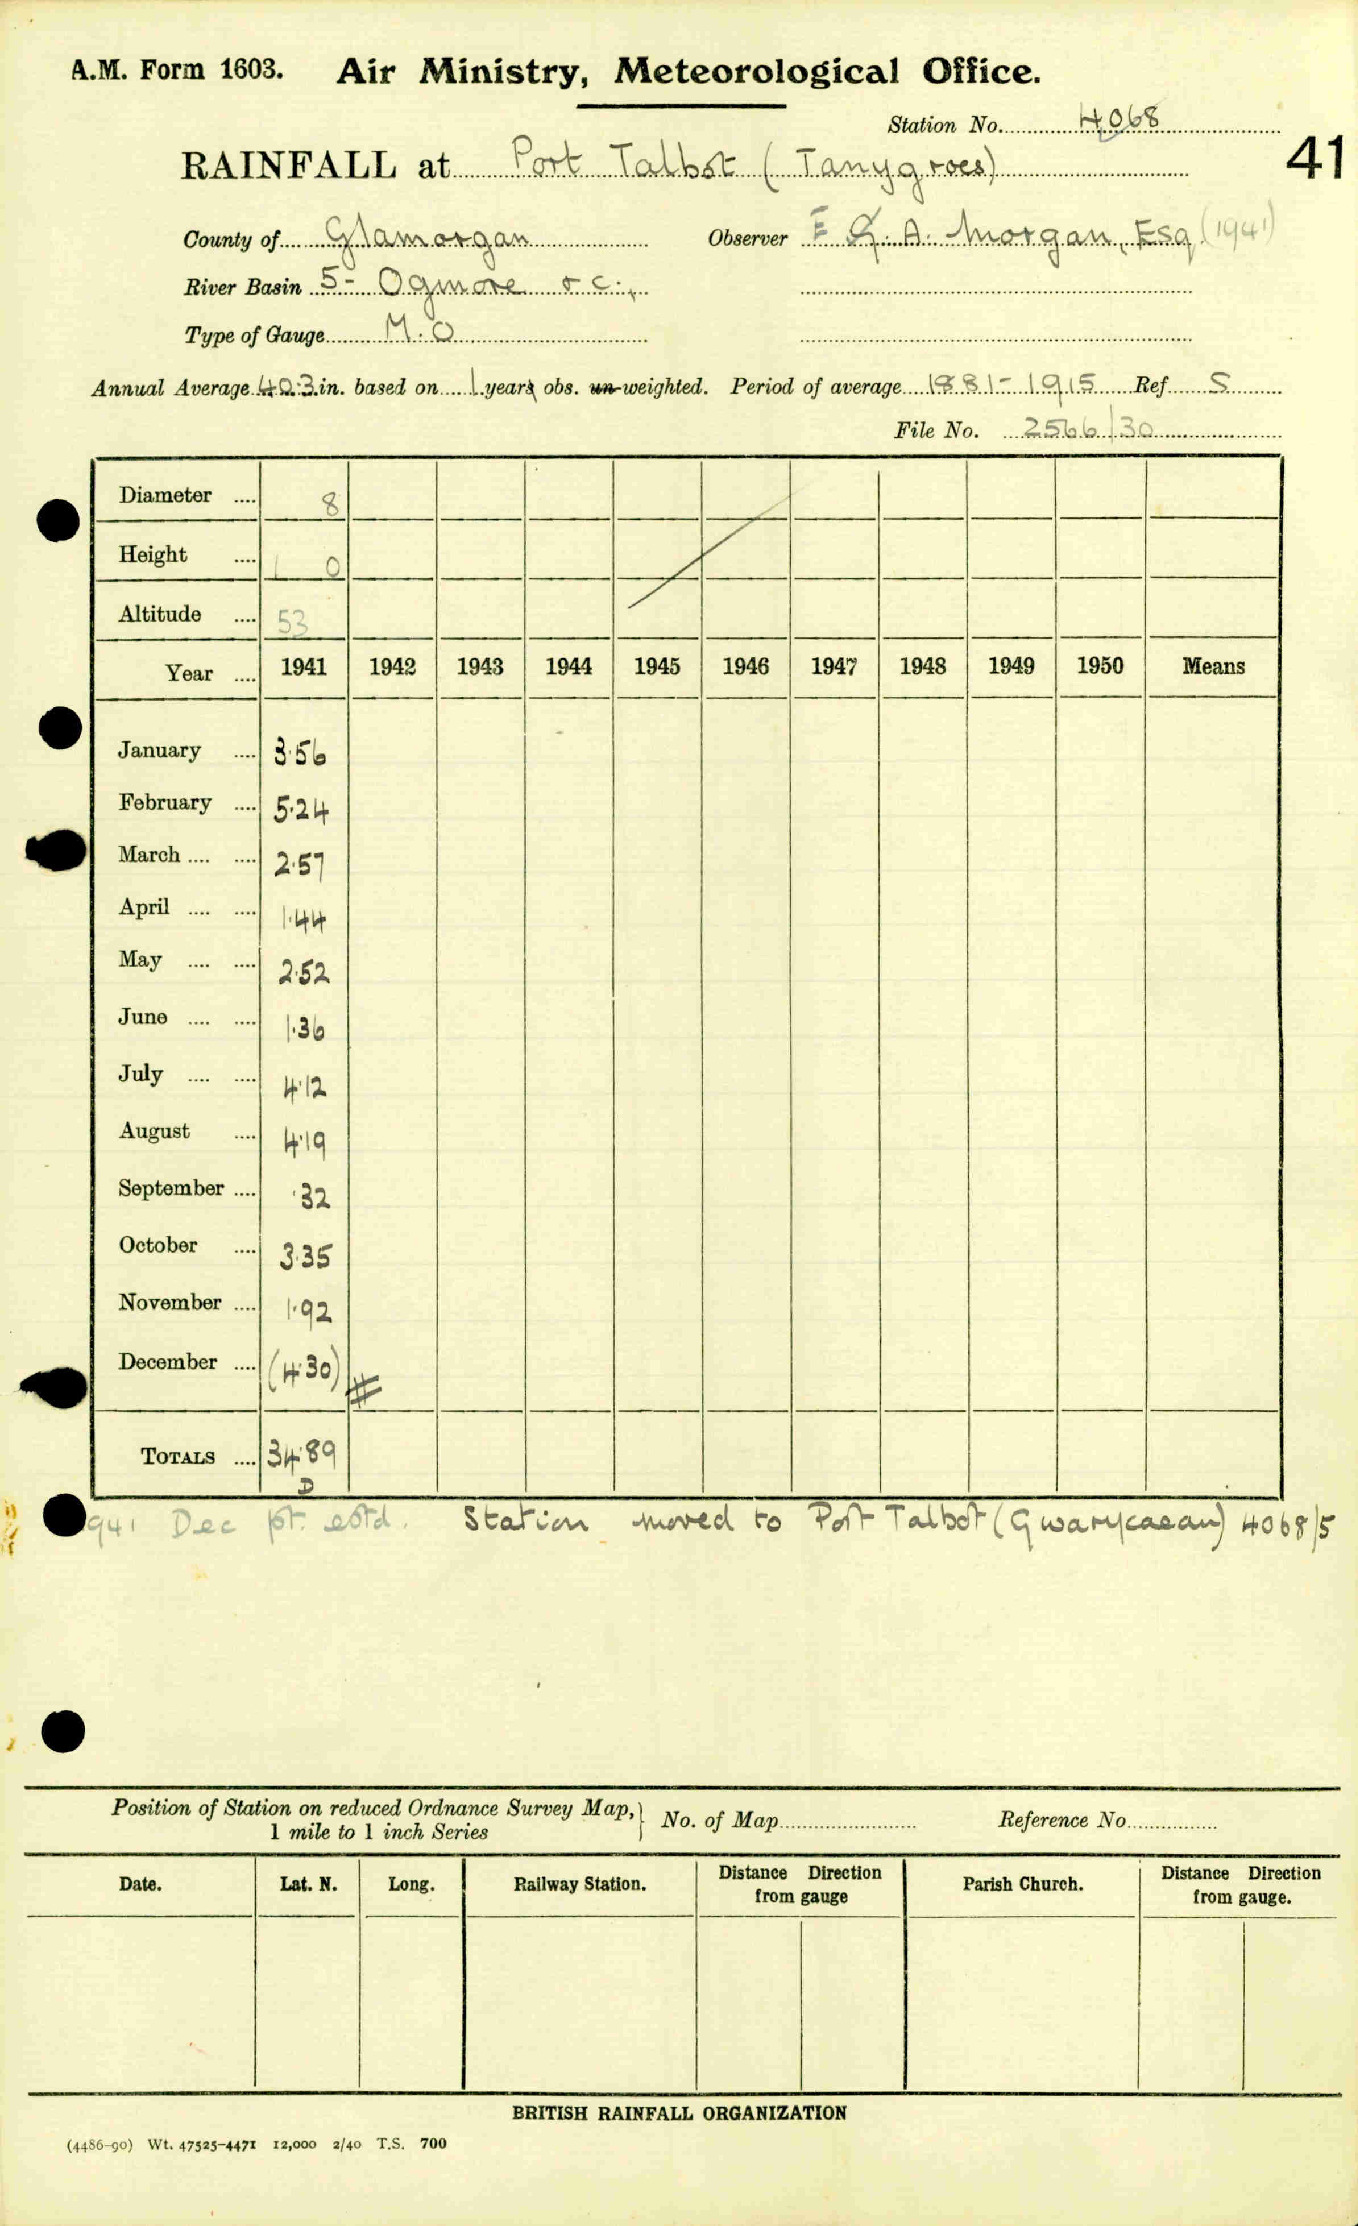 A.M. Form 1603. Air Ministry, Meteorological Office.
Station No. 4068
41
RAINFALL at Port Talbot (Tanygroes)
County of Glamorgan Observer E G. A. Morgan, Esq (1941)
River Basin 5- Ogmore & c.,
Type of Gauge M.O
Annual Average 40.3 in. based on 1 years obs. un-weighted. Period of average 1881-1915 Ref S
File No. 2566/30
Diameter .... 8
Height .... 1 0
Altitude .... 53
Year .... 1941 1942 1943 1944 1945 1946 1947 1948 1949 1950 Means
January .... 3.56
February .... 5.24
March .... .... 2.57
April .... .... 1.44
May .... .... 2.52
June .... .... 1.36
July .... .... 4.12
August .... 4.19
September .... .32
October .... 3.35
November .... 1.92
December .... (4.30) #
TOTALS .... 34.89
D
941 Dec pt. estd. Station moved to Port Talbot (Gwarycaeau) 4068/5
Position of Station on reduced Ordnance Survey Map, } No. of Map Reference No.
1 mile to 1 inch Series
Date. Lat. N. Long. Railway Station. Distance Direction from gauge Parish Church. Distance Direction from gauge.
BRITISH RAINFALL ORGANIZATION
(4486-90) Wt. 47525-4471 12,000 2/40 T.S. 700